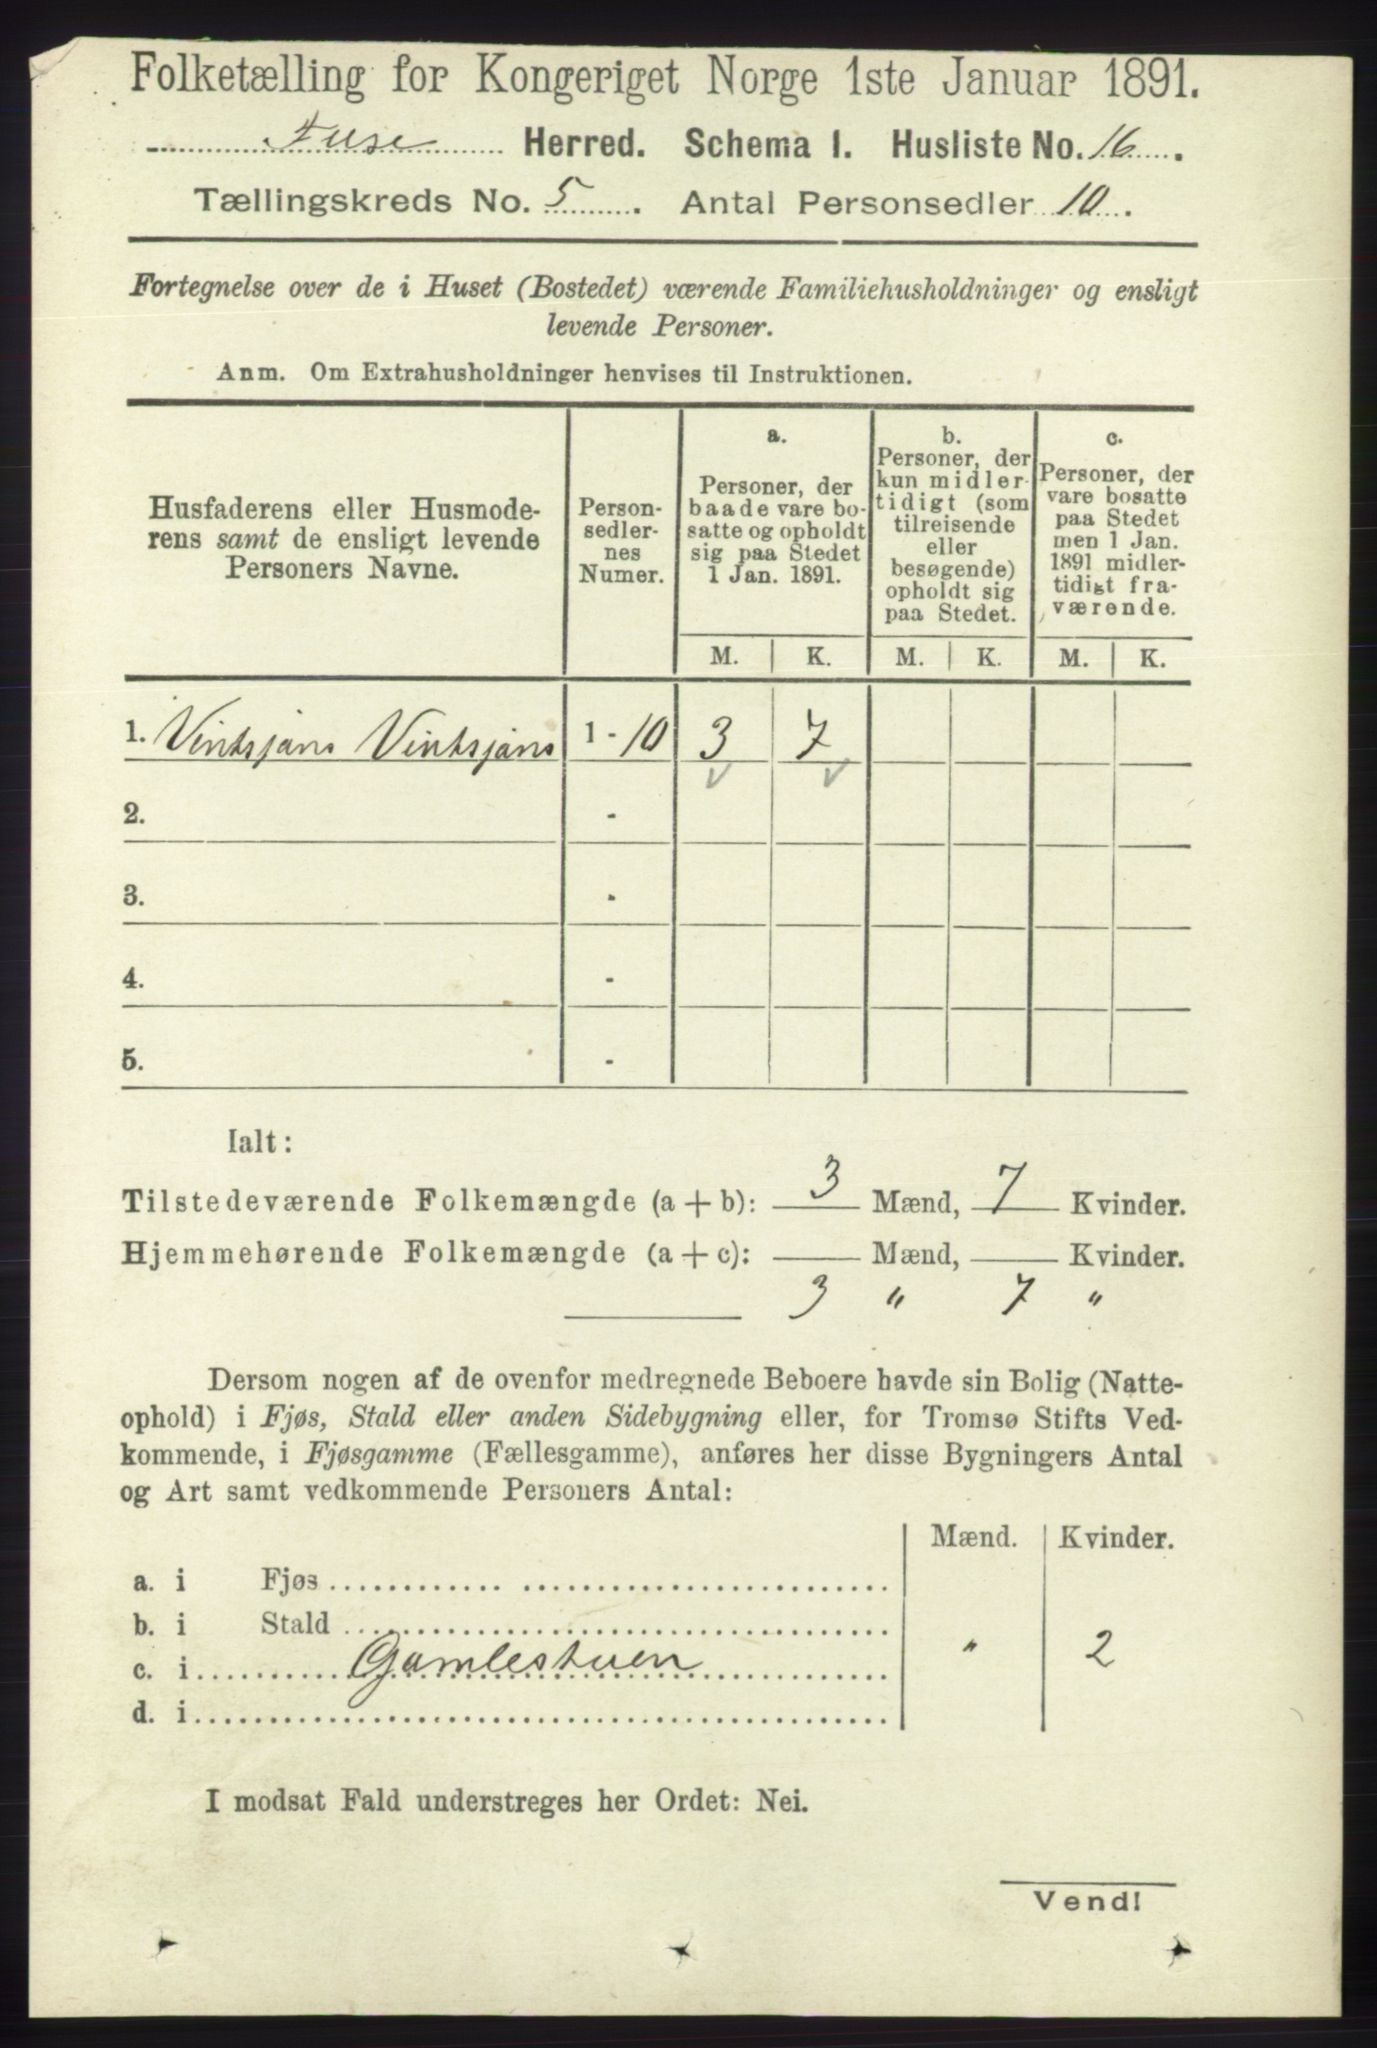 Folketælling for Kongeriget Norge 1ste Januar 1891.
Fuse Herred. Schema I. Husliste No. 16.
Tællingskreds No. 5. Antal Personsedler 10.
Fortegnelse over de i Huset (Bostedet) værende Familiehusholdninger og ensligt
levende Personer.
Anm. Om Extrahusholdninger henvises til Instruktionen.
Husfaderens eller Husmode-
rens samt de ensligt levende
Personers Navne.
Person-
sedler-
nes
Numer.
a.
Personer, der
baade vare bo-
satte og opholdt
sig paa Stedet
1 Jan. 1891.
b.
Personer, der
kun midler-
tidigt (som
tilreisende
eller
besøgende)
opholdt sig
paa Stedet.
c.
Personer, der
vare bosatte
paa Stedet
men 1 Jan.
1891 midler-
tidigt fra-
værende.
M. K. M. K. M. K.
1. Vintsjans Vintsjans 1 - 10 3 7
2. -
3. -
4. -
5. -
Ialt:
Tilstedeværende Folkemængde (a + b): 3 Mænd, 7 Kvinder.
Hjemmehørende Folkemængde (a + c): Mænd, Kvinder.
3 " 7 "
Dersom nogen af de ovenfor medregnede Beboere havde sin Bolig (Natte-
ophold) i Fjøs, Stald eller anden Sidebygning eller, for Tromsø Stifts Ved-
kommende, i Fjøsgamme (Fællesgamme), anføres her disse Bygningers Antal
og Art samt vedkommende Personers Antal:
Mænd. Kvinder.
a. i Fjøs
b. i Stald
c. i Gamlestuen " 2
d. i
I modsat Fald understreges her Ordet: Nei.
Vend!